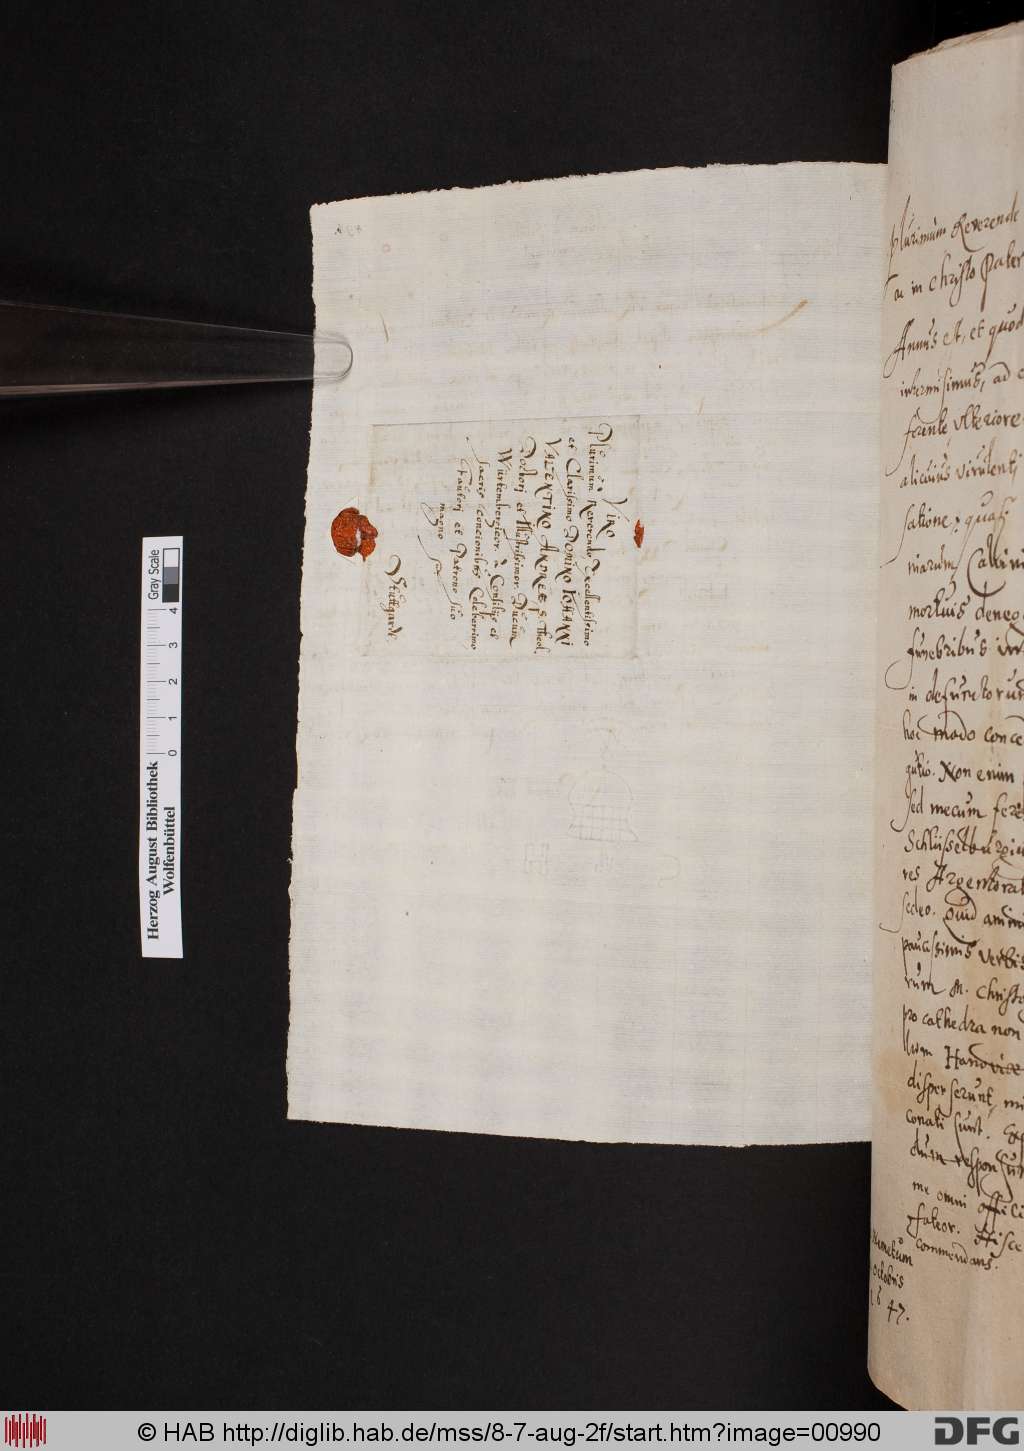 Viro
Plurimum Reverendo Excellentissimo
et Clarissimo DOMINO IOHANNI
VALENTINO ANDREÆ, S. Theol.
Doctori et Illustrissimor. Ducum
Würtembergicor. à Consilijs et
sacris concionibus Celeberrimo
Fautori et Patrono suo
magno
Stutgardt
plurimum Reverende
ac in Christo Pater
Annus est, et quod
infirmissimus, ad
ferente ulteriore
alicuius virulenti
satione, quas
niarum Calvini
mortuis deneg
funebribus
in defunctorum
hoc modo conce
gutio. Non enim
sed mecum fere
Schlüsselburgiu
res Argentorat
sedeo. Quid
paucissimis verbis
rum M. Christo
pro cathedra non
lum Hanoviæ
disperserunt, mi
conati sunt.
dum respon
me omni offici
fateor. Hisce
commendans.
octobris
1647.
Herzog August Bibliothek
Wolfenbüttel
Gray Scale
0 1 2 3 4
© HAB http://diglib.hab.de/mss/8-7-aug-2f/start.htm?image=00990
DFG